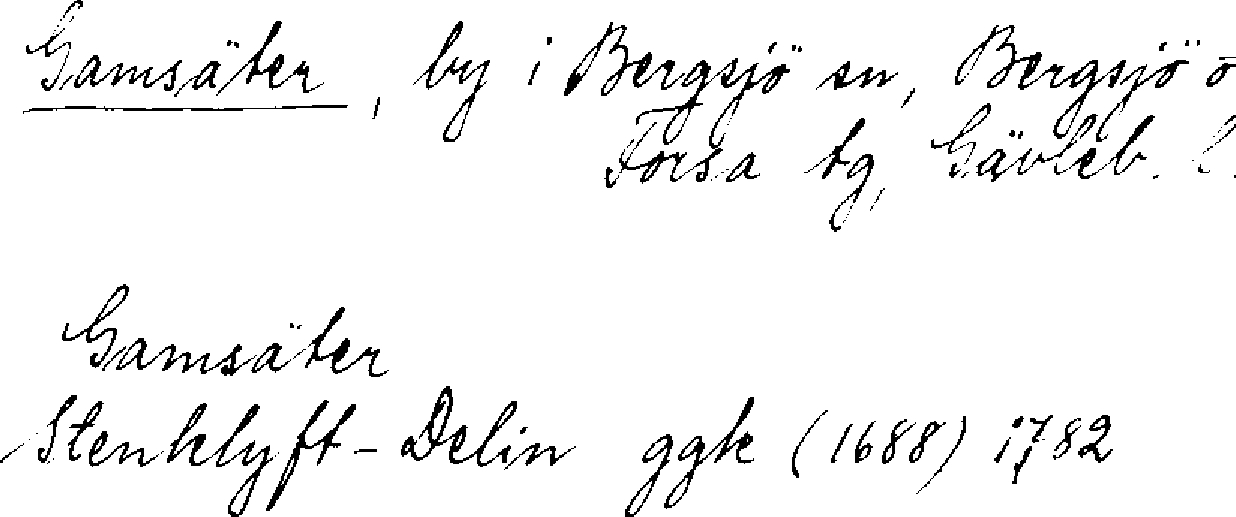 Gamsäter, by i Bergsjö sn, Bergsjö o
Forsa tg, Gävleb. l.
Gamsäter
Stenklyft-Delin ggk (1688) 1782